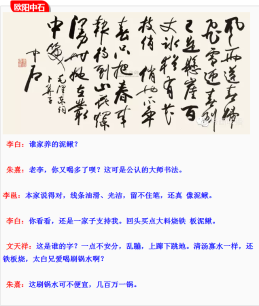 欧阳中石
风雨送春归
飞雪迎春到
已是悬崖百
丈冰犹有花
枝俏俏也不争
春只把春来
报待到山花烂
漫时她在丛
中笑
中石
李白：谁家养的泥鳅？
朱熹：老李，你又喝多了呗？这可是公认的大师书法。
李邕：本家说得对，线条油滑、光洁，留不住笔，还真 像泥鳅。
李白：你看看，还是一家子支持我。回头买点大料烧铁 板泥鳅。
文天祥：这是谁的字？一点不安分，乱蹦，上蹿下跳地，清汤寡水一样，还
铁板烧，太白兄爱喝刷锅水啊？
朱熹：这刷锅水可不便宜，几百万一锅。